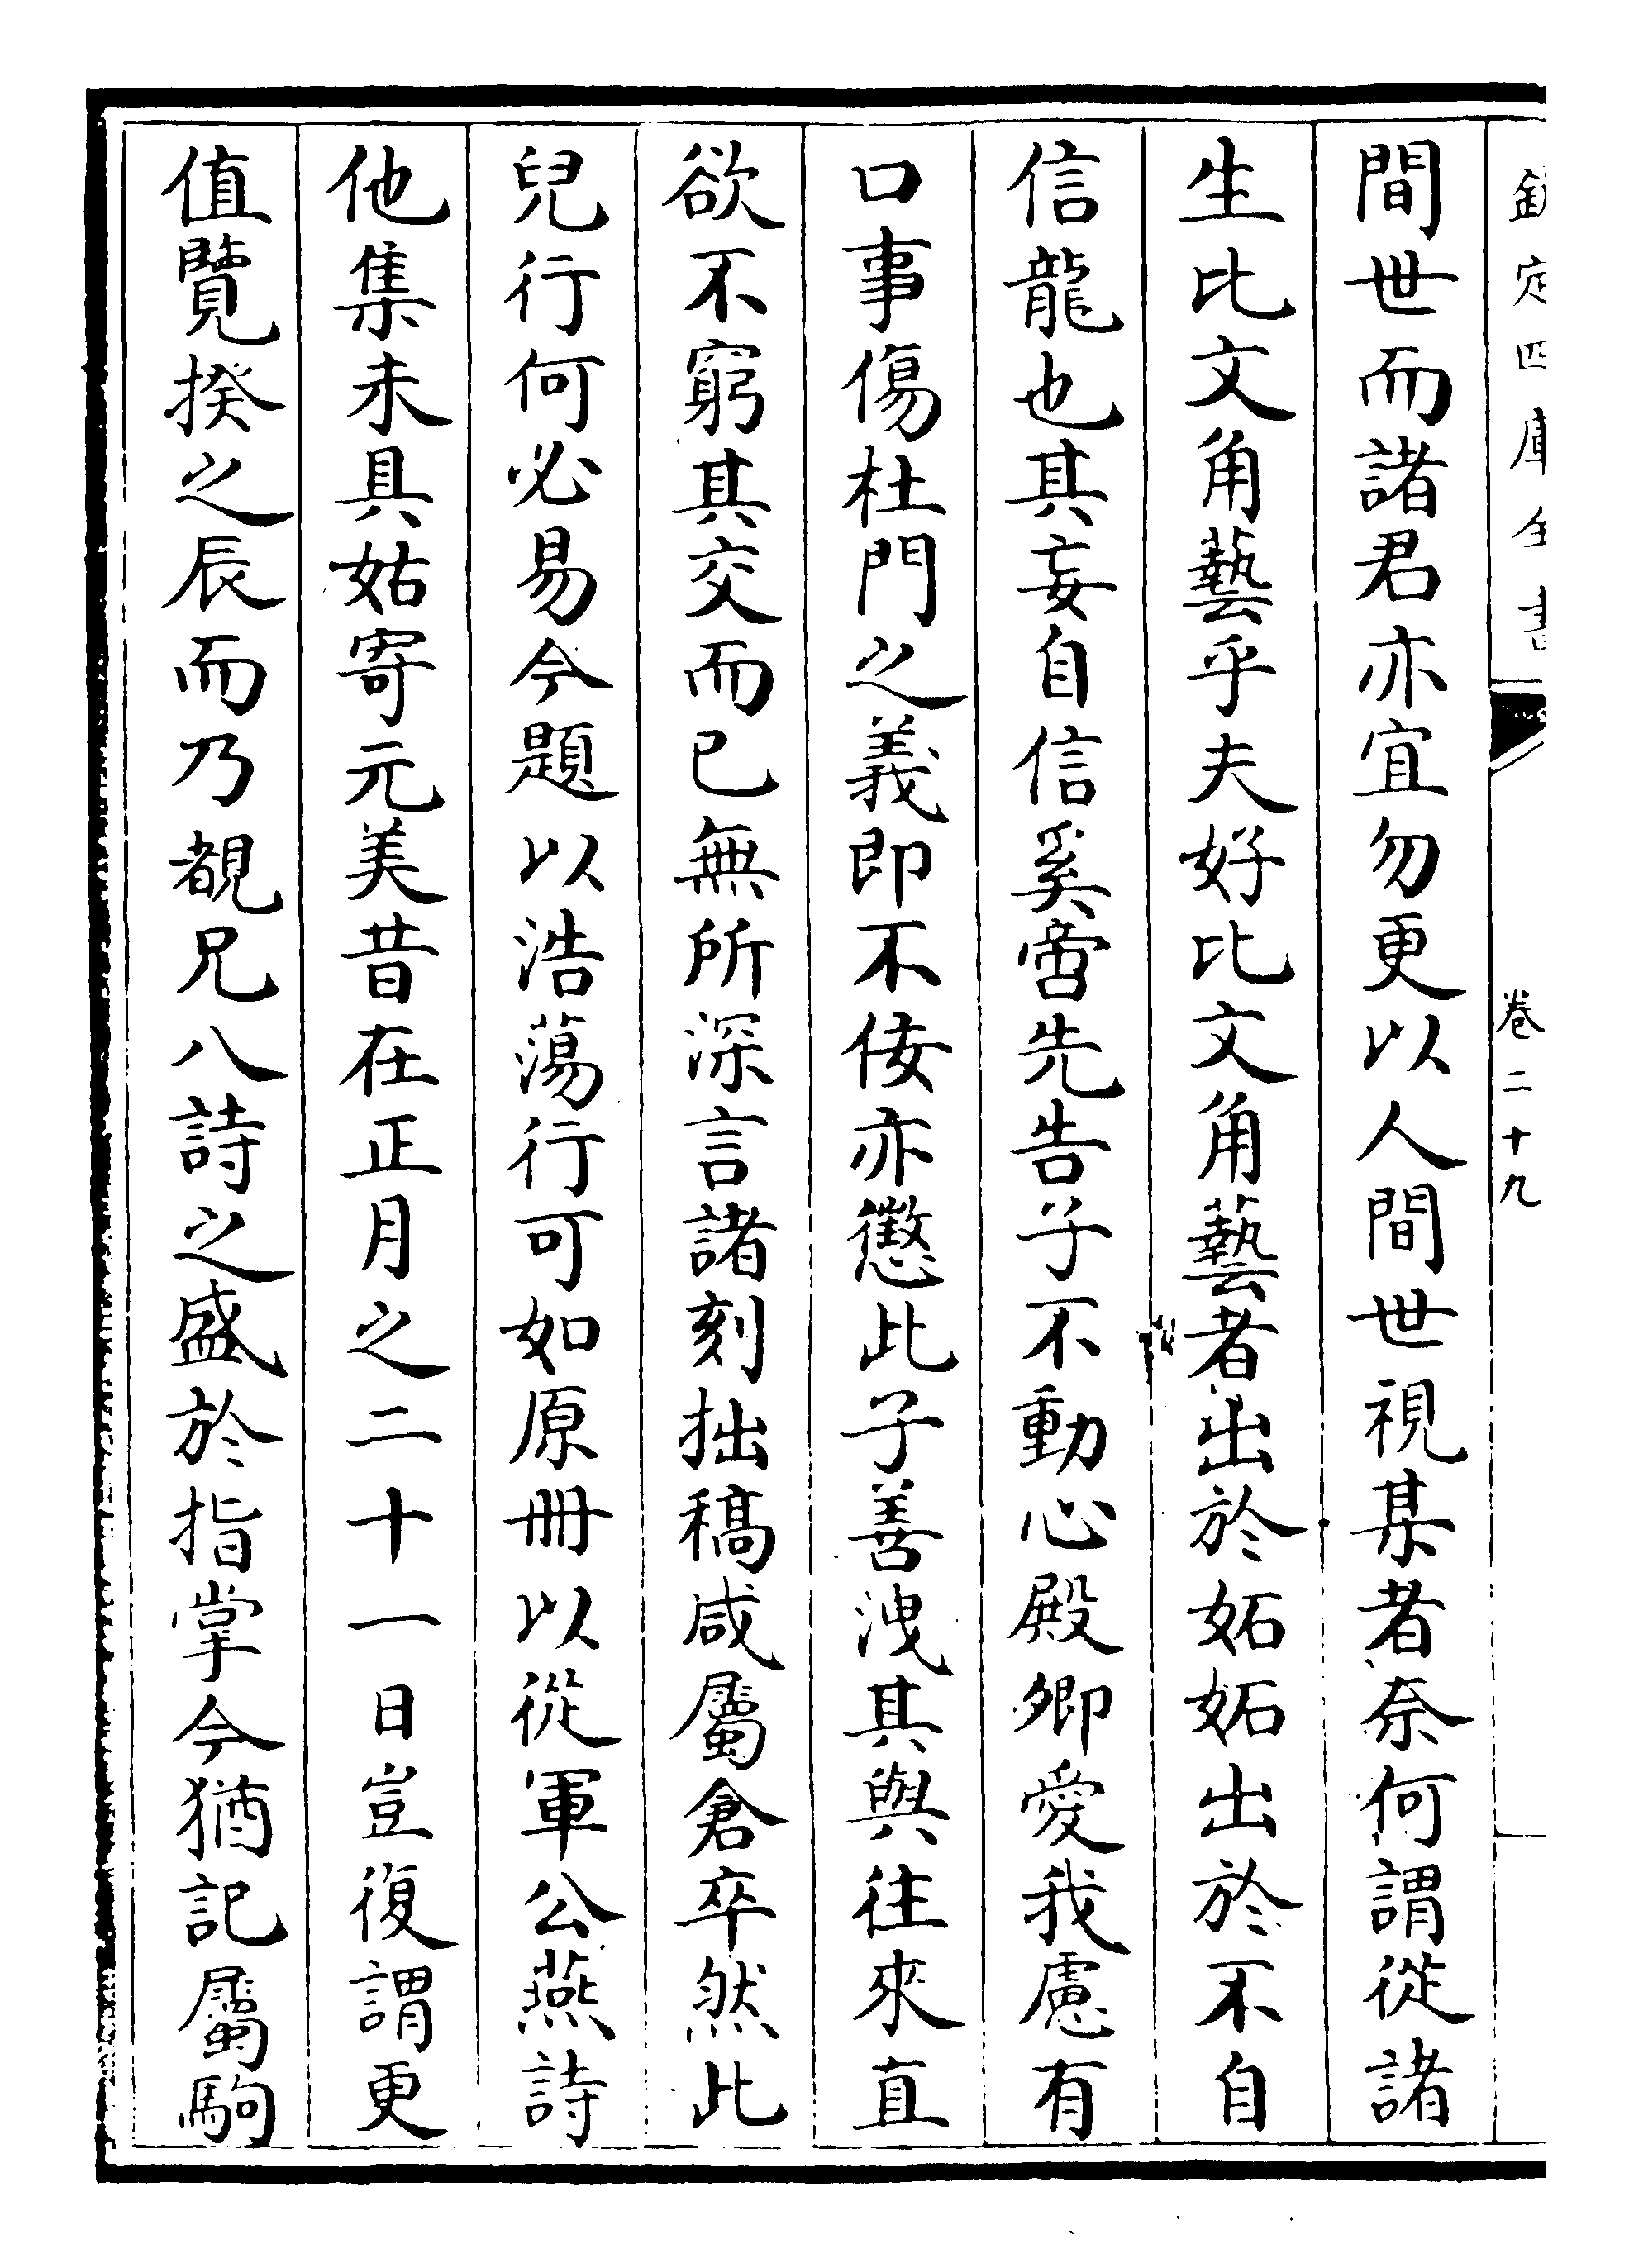 欽定四庫全書
卷二十九
間世而諸君亦宜勿更以人間世視某者奈何謂從諸
生比文角藝乎夫好比文角藝者出於妬妬出於不自
信龍也其妄自信奚啻先告子不動心殿卿愛我慮有
口事傷杜門之義即不佞亦懲此子善洩其與往來直
欲不窮其交而已無所深言諸刻拙稿咸屬倉卒然此
兒行何必易今題以浩蕩行可如原冊以從軍公燕詩
他集未具姑寄元美昔在正月之二十一日豈復謂更
值覽揆之辰而乃覩兄八詩之盛於指掌今猶記屬駒